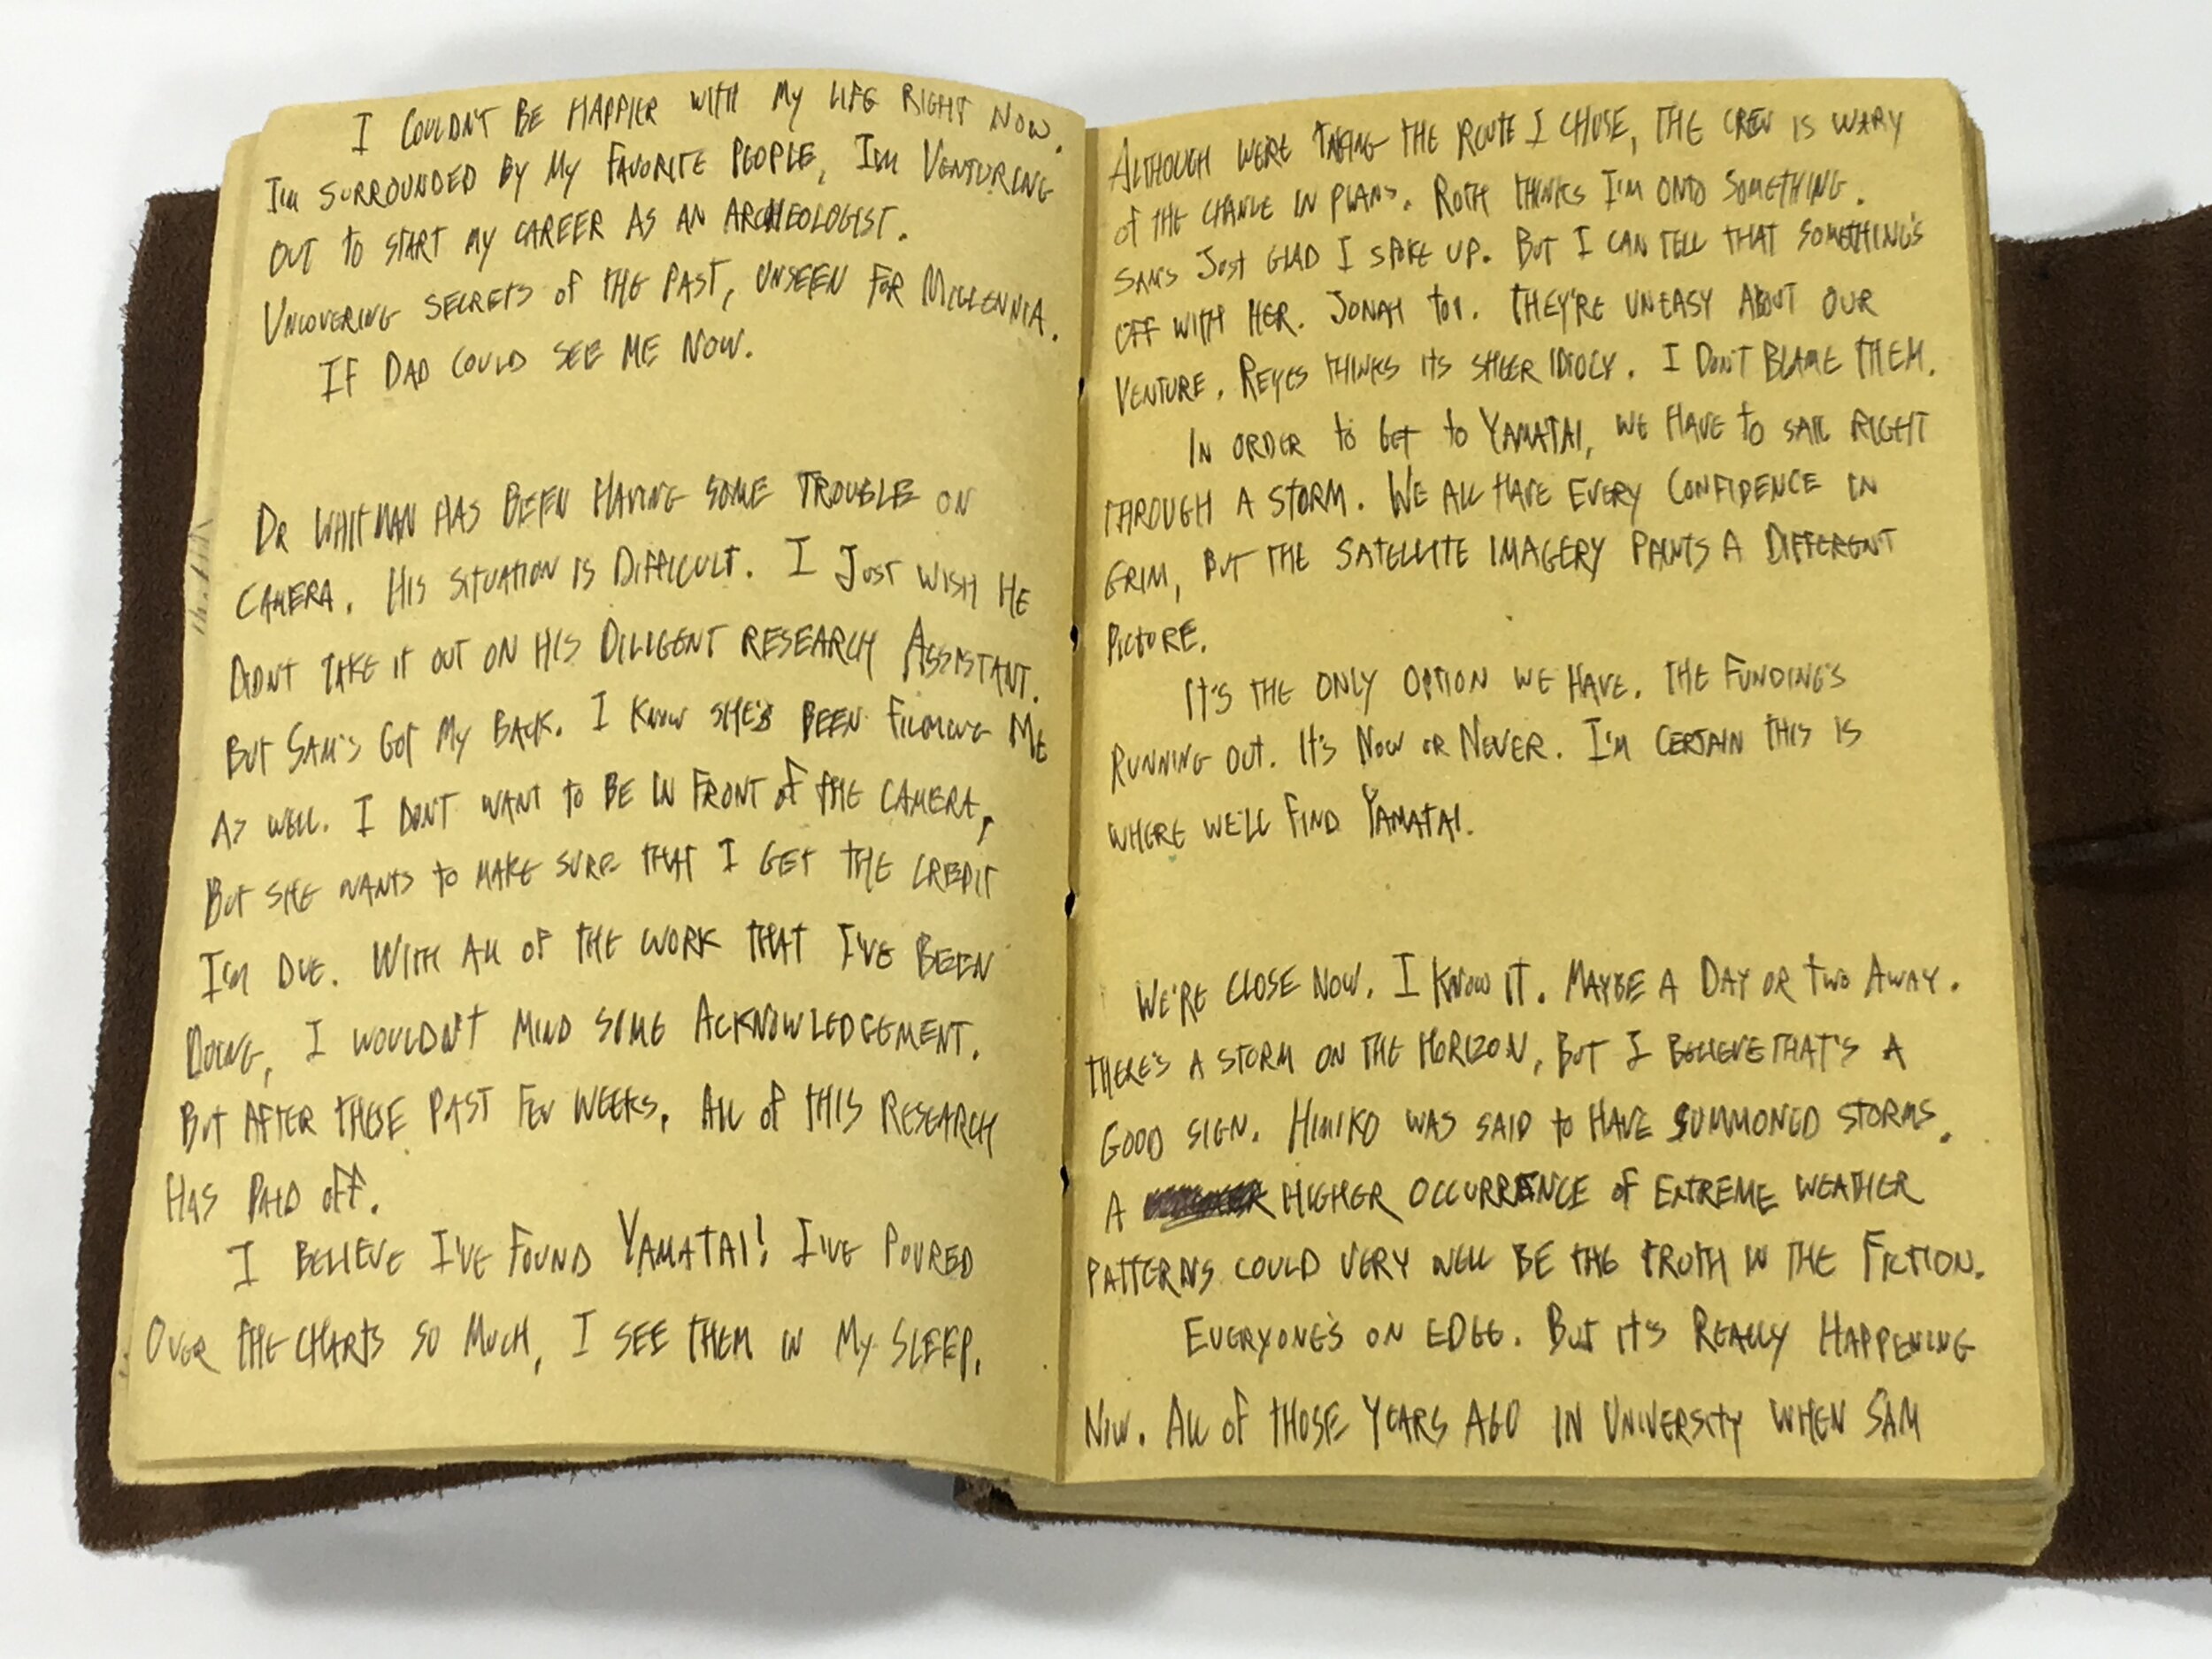 I COULDN'T BE HAPPIER WITH MY LIFE RIGHT NOW.
I'M SURROUNDED BY MY FAVORITE PEOPLE, I'M VENTURING
OUT TO START MY CAREER AS AN ARCHEOLOGIST.
UNCOVERING SECRETS OF THE PAST, UNSEEN FOR MILLENNIA.
IF DAD COULD SEE ME NOW.
DR WHITMAN HAS BEEN HAVING SOME TROUBLE ON
CAMERA. HIS SITUATION IS DIFFICULT. I JUST WISH HE
DIDN'T TAKE IT OUT ON HIS DILIGENT RESEARCH ASSISTANT.
BUT SAM'S GOT MY BACK. I KNOW SHE'S BEEN FILMING ME
AS WELL. I DON'T WANT TO BE IN FRONT OF THE CAMERA,
BUT SHE WANTS TO MAKE SURE THAT I GET THE CREDIT
I'M DUE. WITH ALL OF THE WORK THAT I'VE BEEN
DOING, I WOULDN'T MIND SOME ACKNOWLEDGEMENT.
BUT AFTER THESE PAST FEW WEEKS, ALL OF THIS RESEARCH
HAS PAID OFF.
I BELIEVE I'VE FOUND YAMATAI! I'VE POURED
OVER THE CHARTS SO MUCH, I SEE THEM IN MY SLEEP.
ALTHOUGH WE'RE TAKING THE ROUTE I CHOSE, THE CREW IS WARY
OF THE CHANGE IN PLANS. ROTH THINKS I'M ONTO SOMETHING.
SAM'S JUST GLAD I SPOKE UP. BUT I CAN TELL THAT SOMETHING'S
OFF WITH HER. JONAH TOO. THEY'RE UNEASY ABOUT OUR
VENTURE. REYES THINKS ITS SHEER IDIOCY. I DON'T BLAME THEM.
IN ORDER TO GET TO YAMATAI, WE HAVE TO SAIL RIGHT
THROUGH A STORM. WE ALL HAVE EVERY CONFIDENCE IN
GRIM, BUT THE SATELLITE IMAGERY PAINTS A DIFFERENT
PICTURE.
IT'S THE ONLY OPTION WE HAVE. THE FUNDING'S
RUNNING OUT. IT'S NOW OR NEVER. I'M CERTAIN THIS IS
WHERE WE'LL FIND YAMATAI.
WE'RE CLOSE NOW. I KNOW IT. MAYBE A DAY OR TWO AWAY.
THERE'S A STORM ON THE HORIZON, BUT I BELIEVE THAT'S A
GOOD SIGN. HIMIKO WAS SAID TO HAVE SUMMONED STORMS.
A HIGHER OCCURRENCE OF EXTREME WEATHER
PATTERNS COULD VERY WELL BE THE TRUTH IN THE FICTION.
EVERYONE'S ON EDGE. BUT IT'S REALLY HAPPENING
NOW. ALL OF THOSE YEARS AGO IN UNIVERSITY WHEN SAM